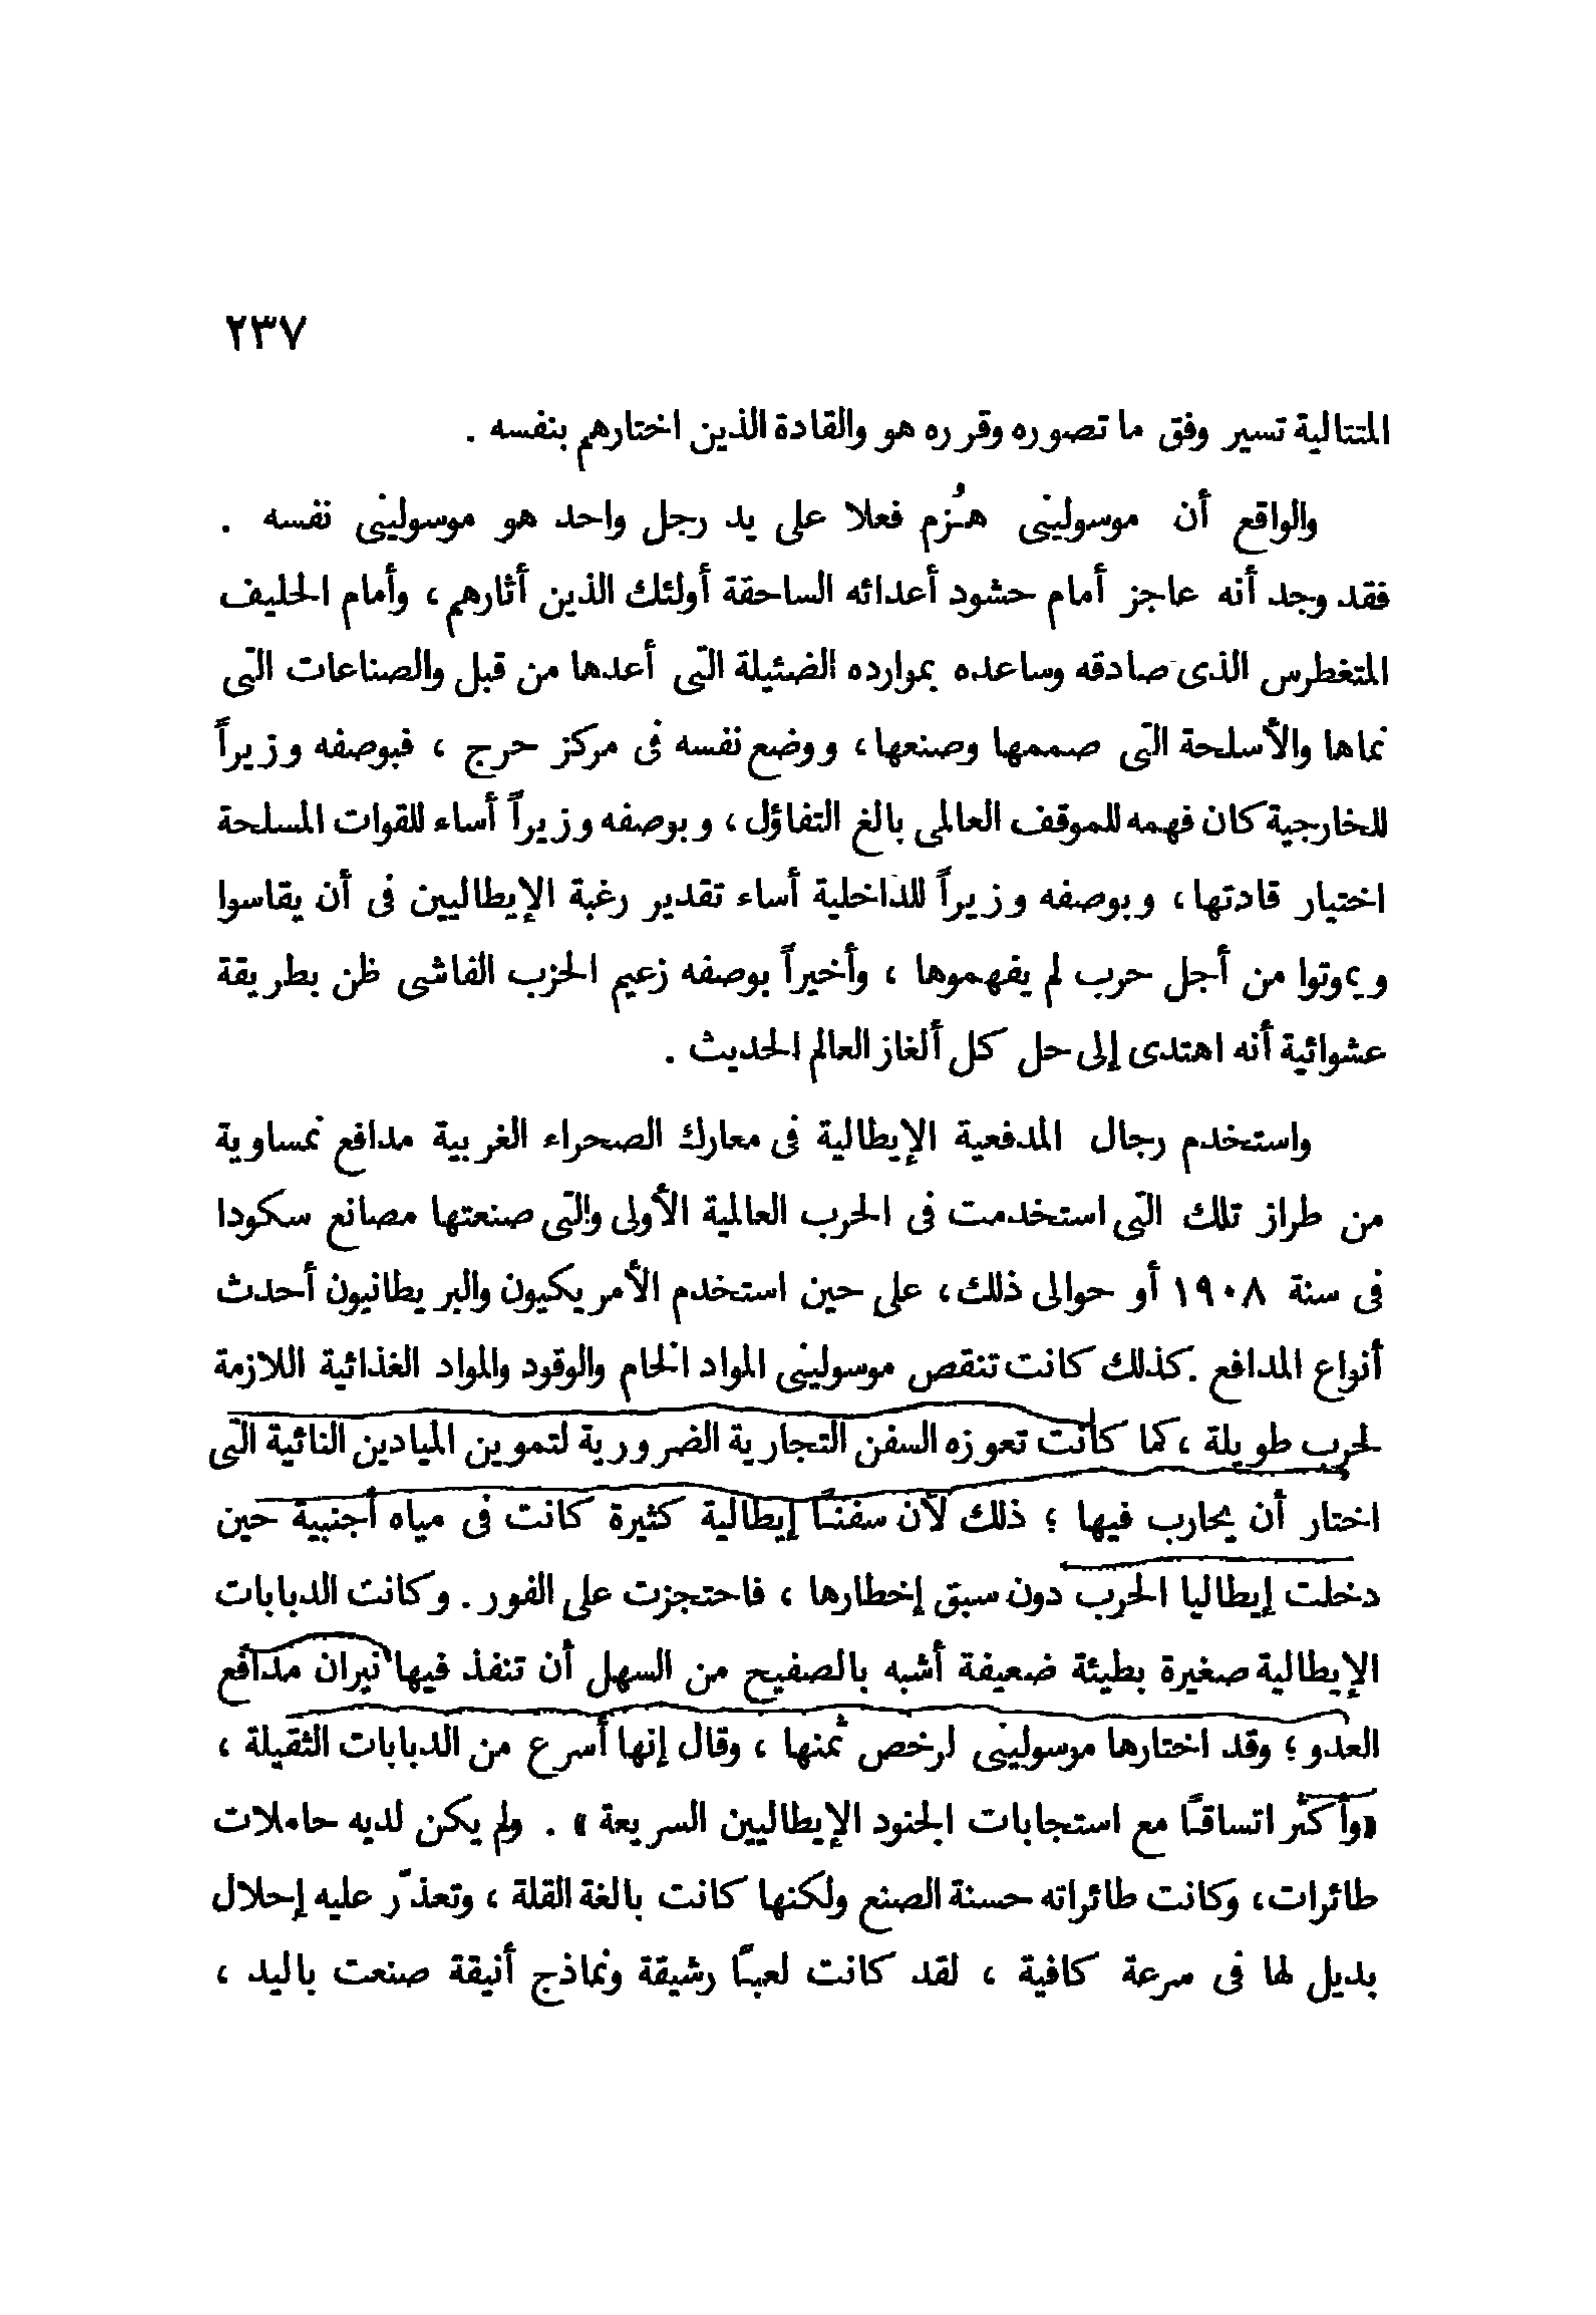 ٢٣٧
المتتالية تسير وفق ما تصوره وقرره هو والقادة الذين اختارهم بنفسه .
والواقع أن موسولينى هُزم فعلا على يد رجل واحد هو موسولينى نفسه .
فقد وجد أنه عاجز أمام حشود أعدائه الساحقة أولئك الذين أثارهم ، وأمام الحليف
المتغطرس الذى صادقه وساعده بموارده الضئيلة التى أعدها من قبل والصناعات التى
نماها والأسلحة التى صممها وصنعها ، ووضع نفسه فى مركز حرج ، فبوصفه وزيراً
للخارجية كان فهمه للموقف العالمى بالغ التفاؤل ، وبوصفه وزيراً أساء للقوات المسلحة
اختيار قادتها ، وبوصفه وزيراً للداخلية أساء تقدير رغبة الإيطاليين فى أن يقاسوا
ويموتوا من أجل حرب لم يفهموها ، وأخيراً بوصفه زعيم الحزب الفاشى ظن بطريقة
عشوائية أنه اهتدى إلى حل كل ألغاز العالم الحديث .
واستخدم رجال المدفعية الإيطالية فى معارك الصحراء الغربية مدافع نمساوية
من طراز تلك التى استخدمت فى الحرب العالمية الأولى والتى صنعتها مصانع سكودا
فى سنة ١٩٠٨ أو حوالى ذلك ، على حين استخدم الأمريكيون والبريطانيون أحدث
أنواع المدافع . كذلك كانت تنقص موسولينى المواد الخام والوقود والمواد الغذائية اللازمة
لحرب طويلة ، كما كانت تعوزه السفن التجارية الضرورية لتموين الميادين النائية التى
اختار أن يحارب فيها ؛ ذلك لأن سفنًا إيطالية كثيرة كانت فى مياه أجنبية حين
دخلت إيطاليا الحرب دون سبق إخطارها ، فاحتجزت على الفور . وكانت الدبابات
الإيطالية صغيرة بطيئة ضعيفة أشبه بالصفيح من السهل أن تنفذ فيها نيران مدافع
العدو ؛ وقد اختارها موسولينى لرخص ثمنها ، وقال إنها أسرع من الدبابات الثقيلة ،
«وأكثر اتساقًا مع استجابات الجنود الإيطاليين السريعة» . ولم يكن لديه حاملات
طائرات ، وكانت طائراته حسنة الصنع ولكنها كانت بالغة القلة ، وتعذّر عليه إحلال
بديل لها فى سرعة كافية ، لقد كانت لعبًا رشيقة ونماذج أنيقة صنعت باليد ،